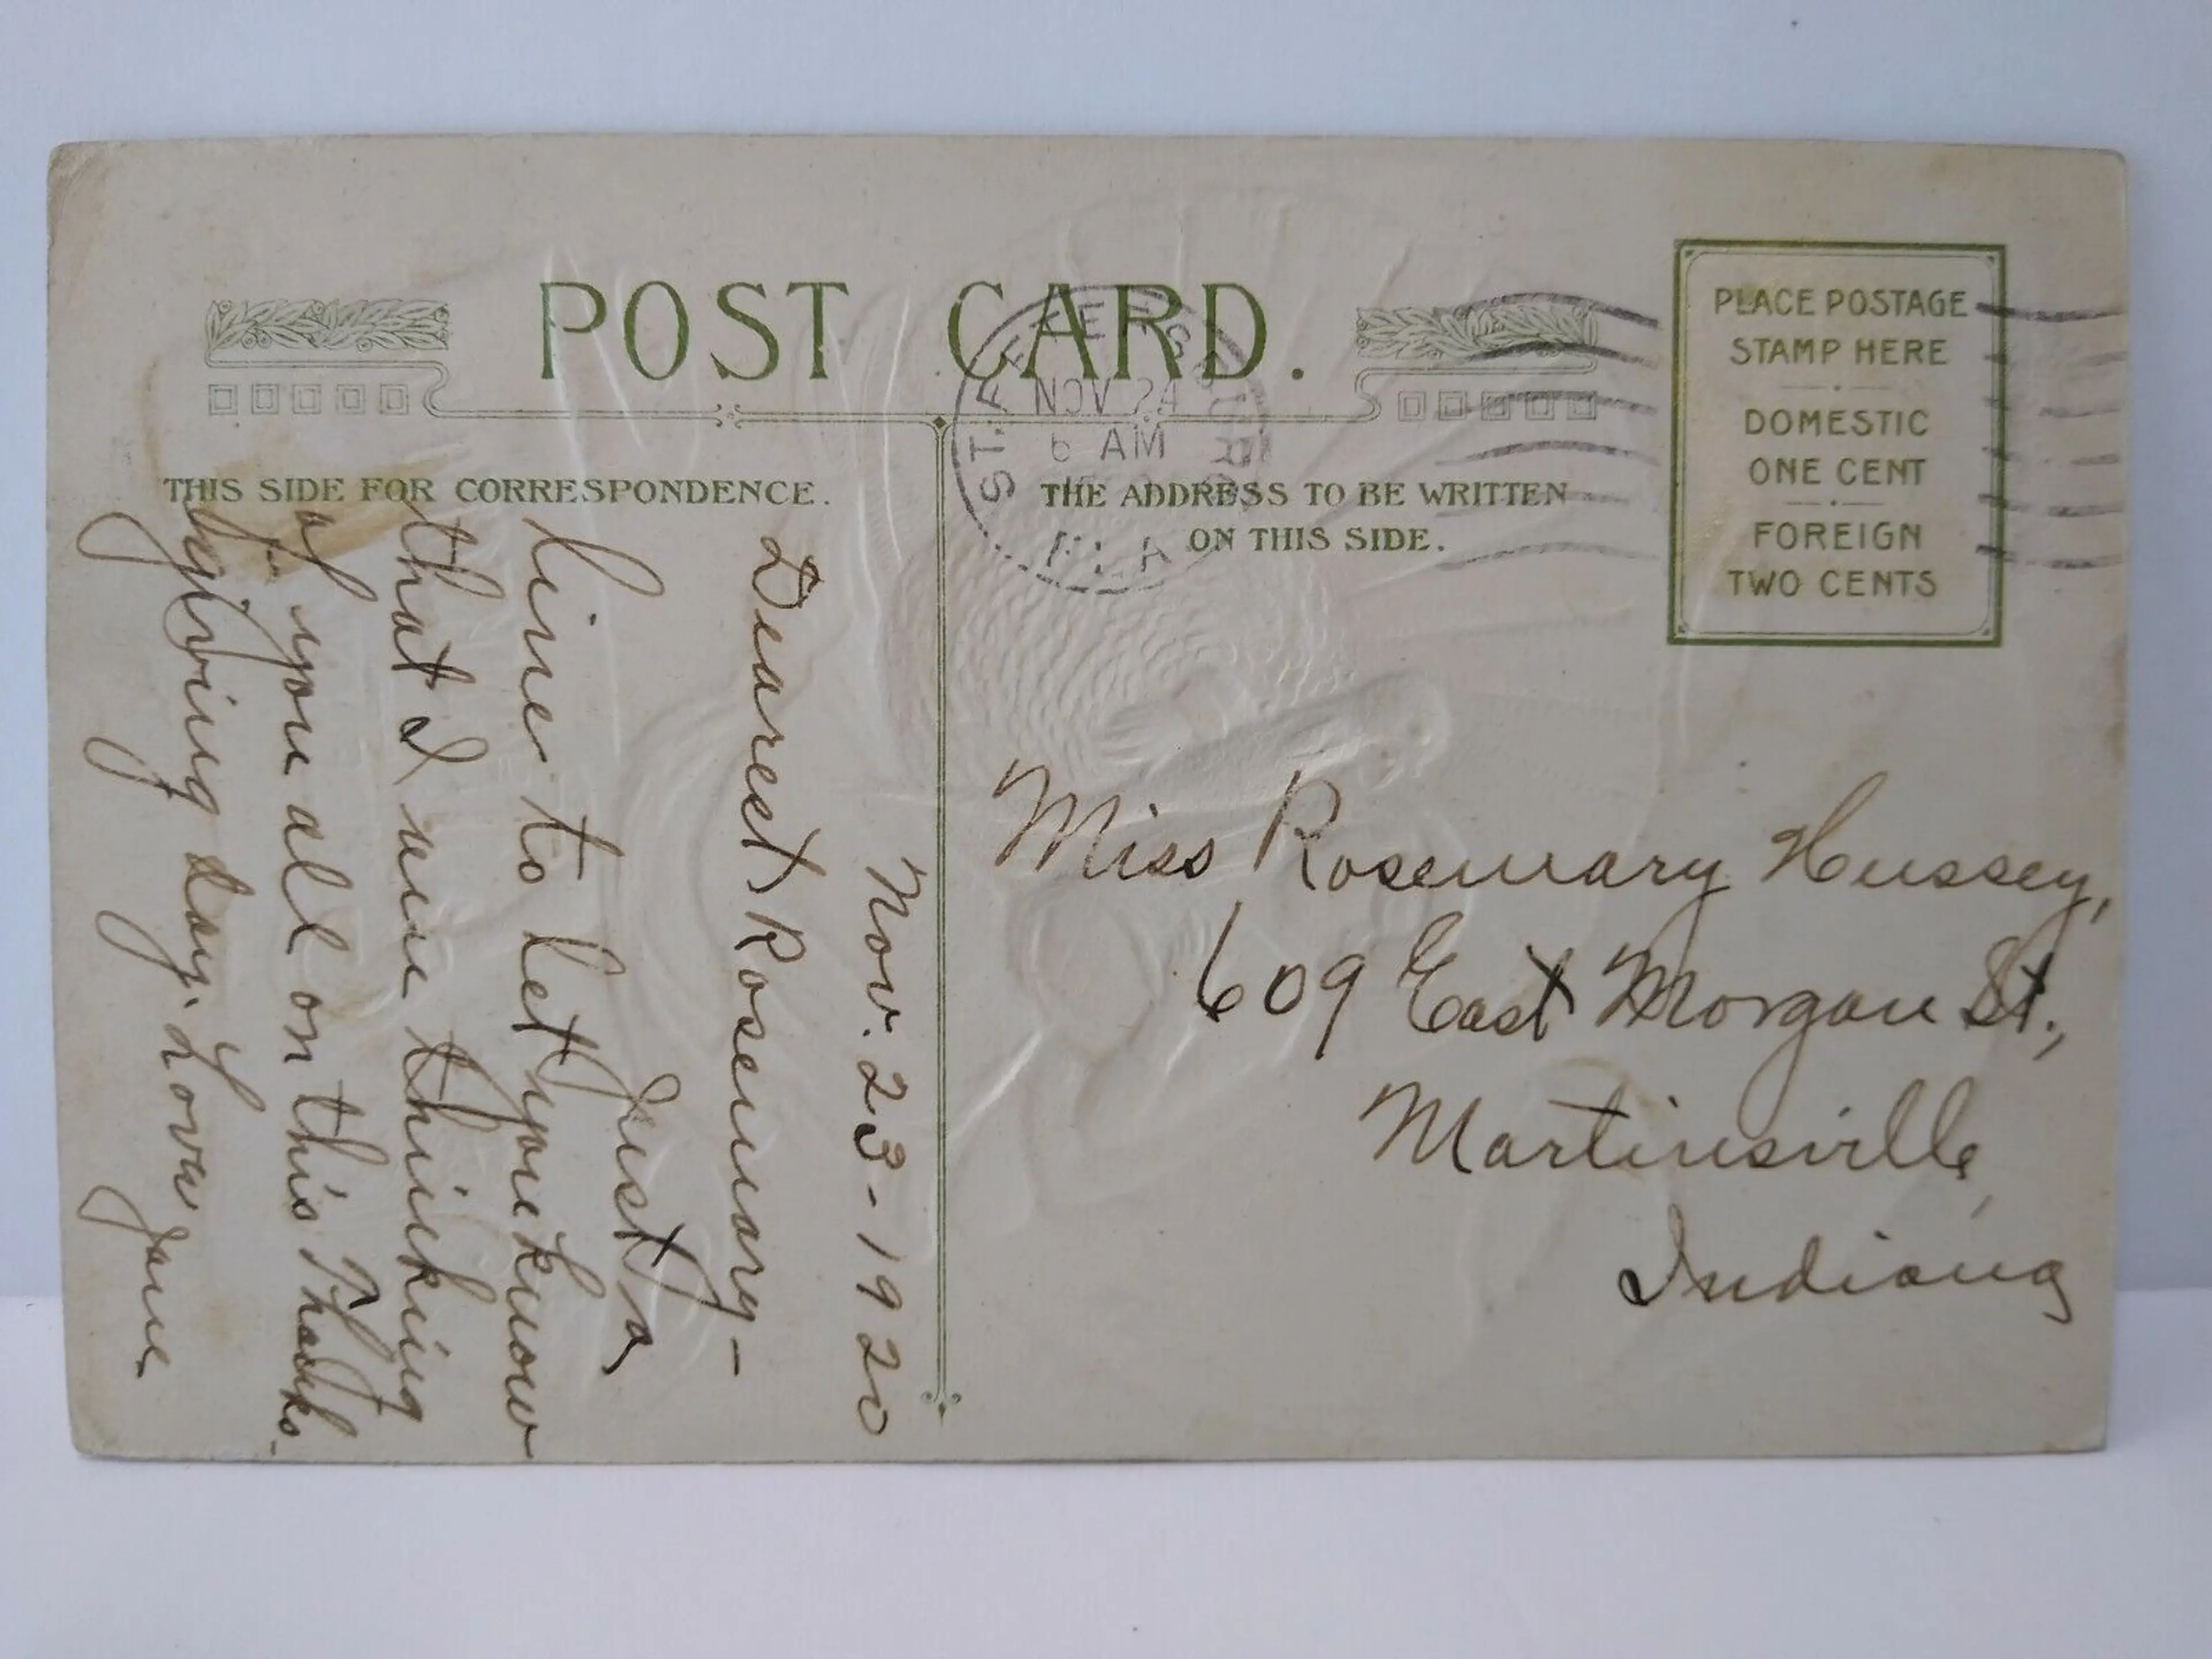 POST CARD.
THIS SIDE FOR CORRESPONDENCE.
THE ADDRESS TO BE WRITTEN
ON THIS SIDE.
PLACE POSTAGE
STAMP HERE
DOMESTIC
ONE CENT
FOREIGN
TWO CENTS
ST. PETERSBURG
NOV 24
6 AM
FLA
Nov. 23-1920
Dearest Rosemary-
Just a
line to let you know
that I am thinking
of you all on this Thanks-
giving day. Love
Jane
Miss Rosemary Hussey,
609 East Morgan St.,
Martinsville,
Indiana